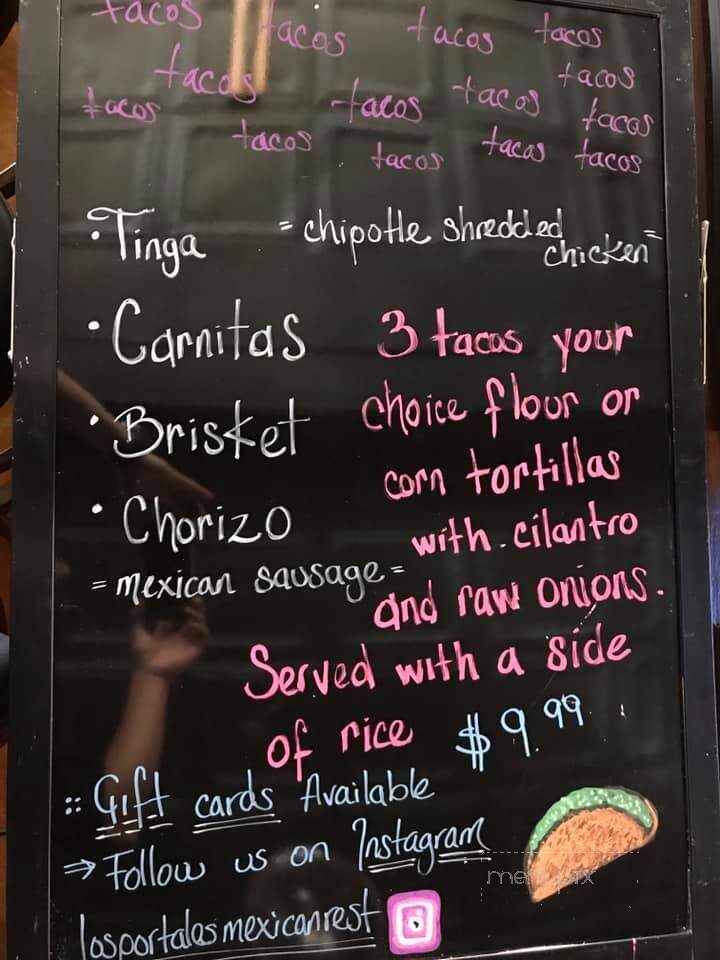 tacos tacos tacos tacos
tacos tacos
tacos tacos tacos tacos
tacos tacos tacos tacos
• Tinga = chipotle shredded chicken =
• Carnitas
• Brisket
• Chorizo
= mexican sausage =
3 tacos your
choice flour or
corn tortillas
with cilantro
and raw onions.
Served with a side
of rice $9.99
:: Gift cards Available
⇒ Follow us on Instagram
losportalesmexicanrest